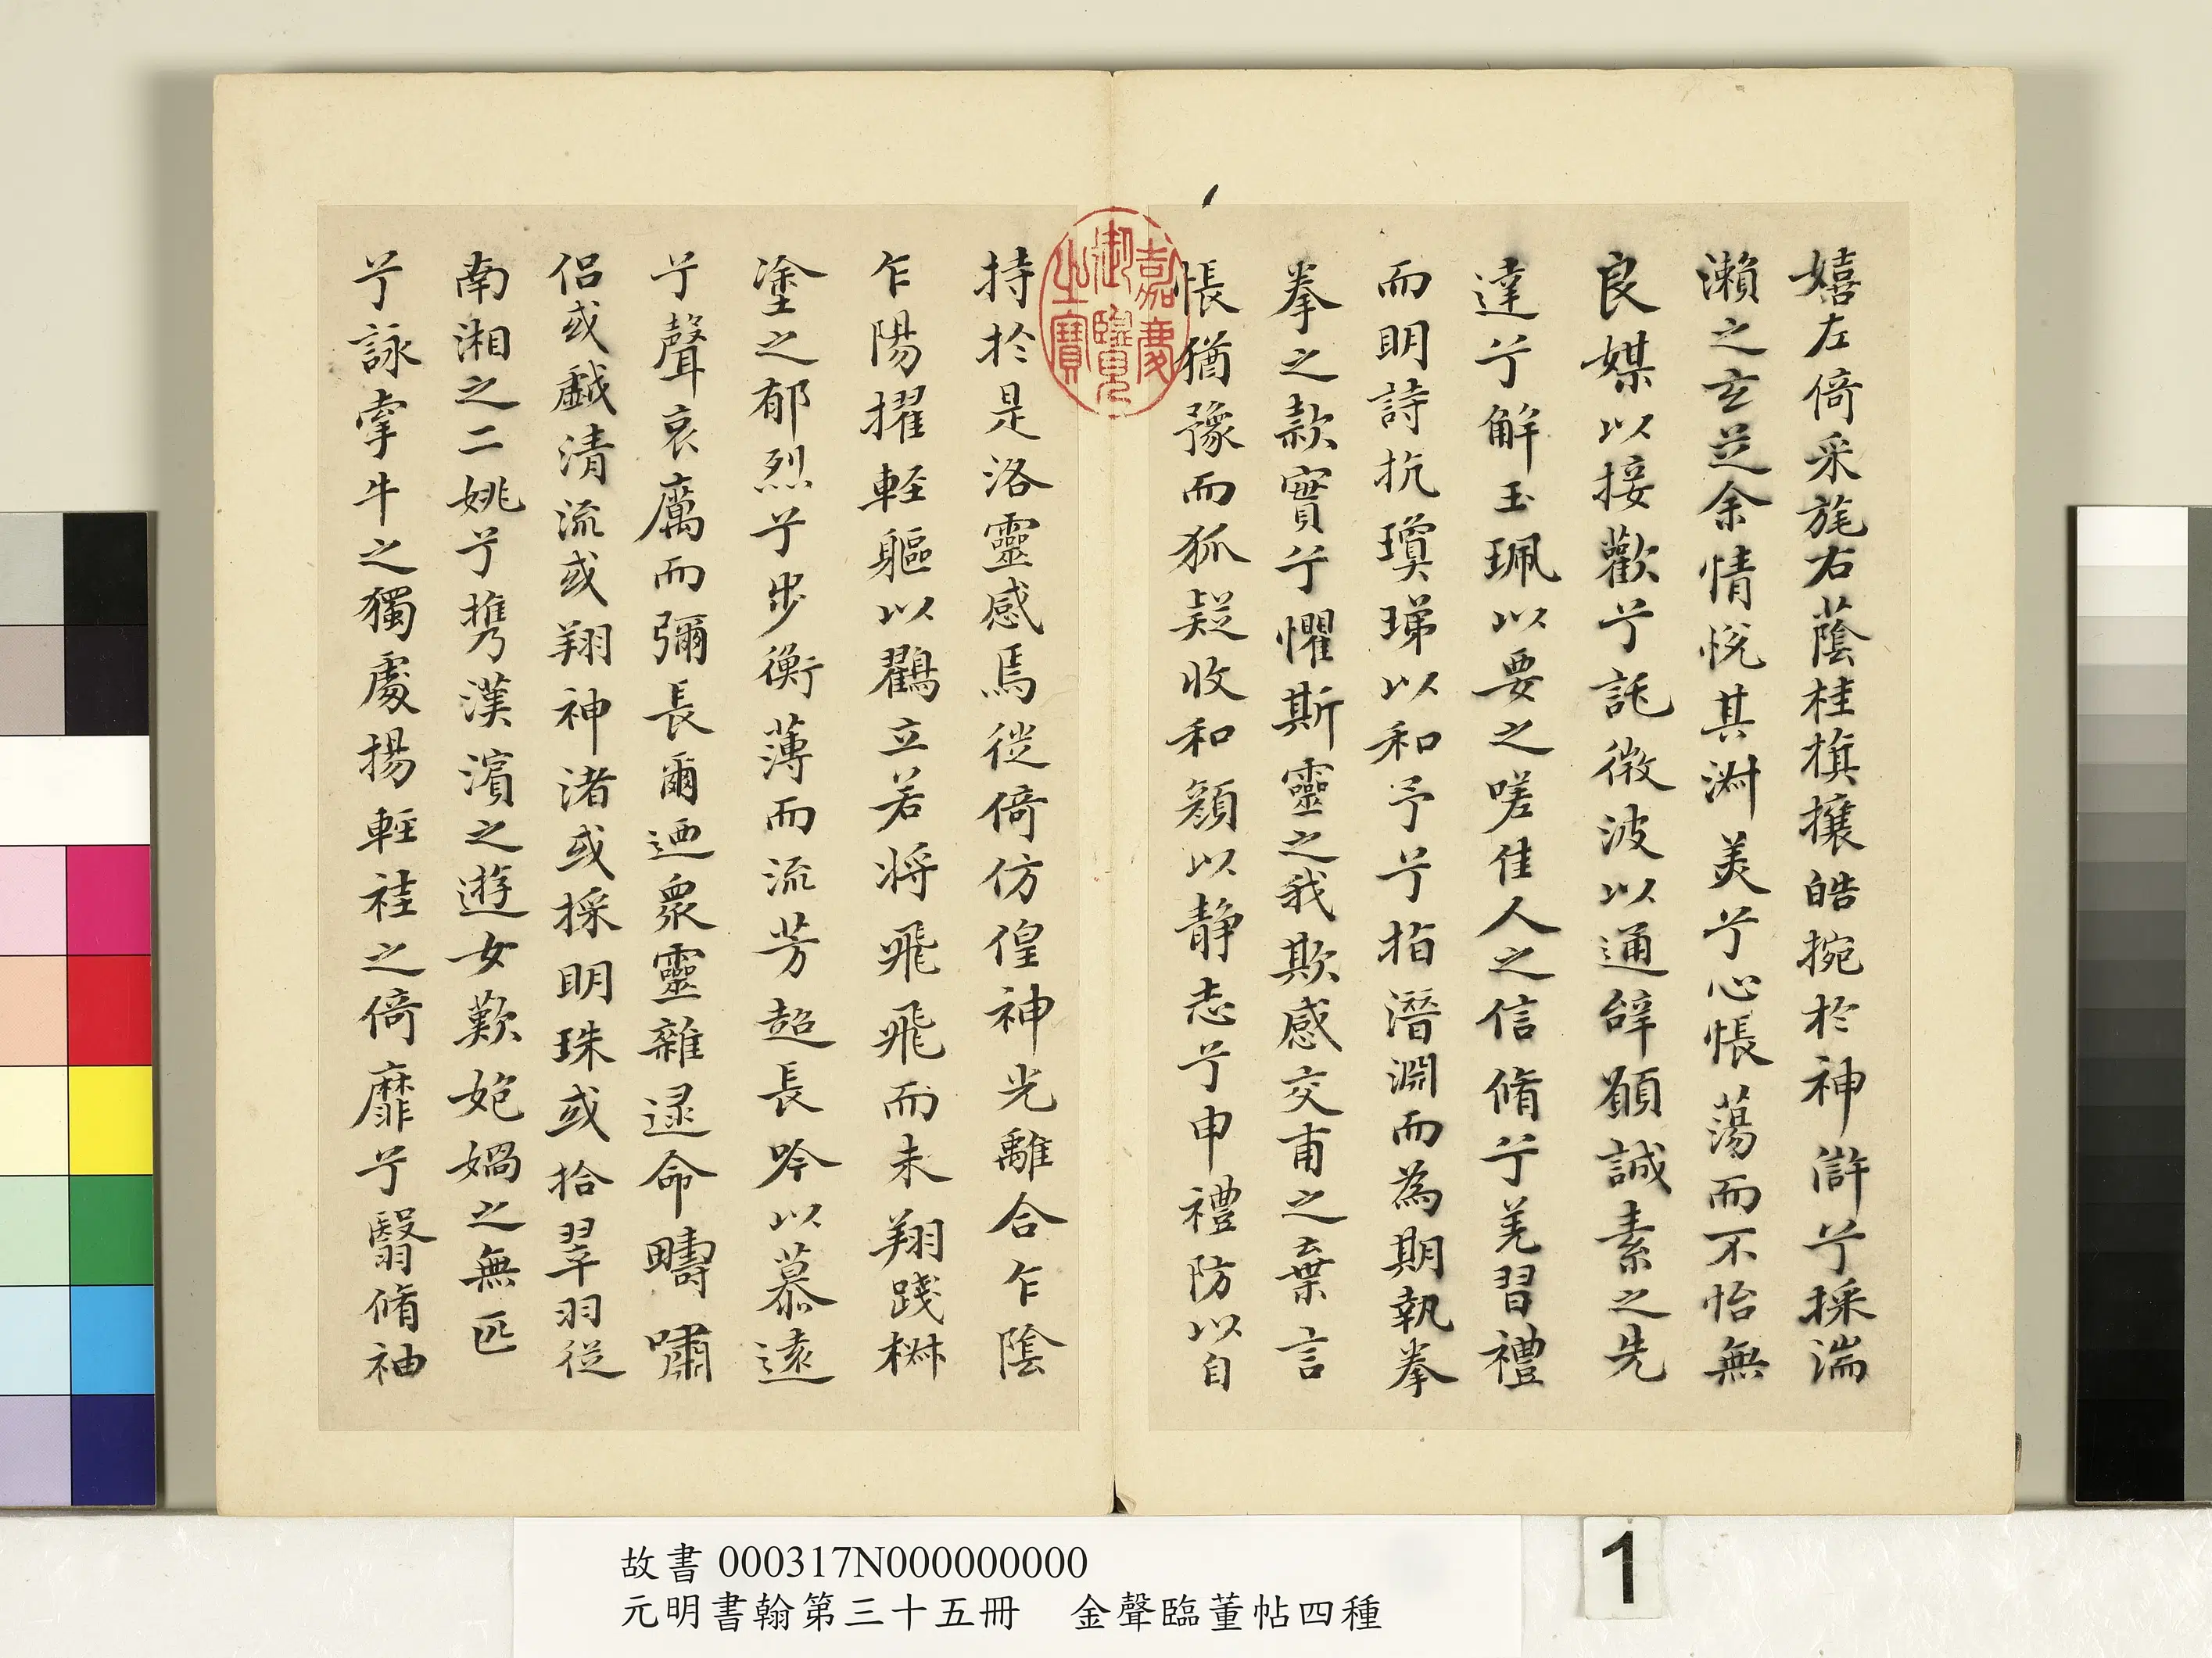 嬉左倚采旄右蔭桂旗攘皓捥於神滸兮採湍
瀨之玄芝余情悅其淑美兮心悵蕩而不怡無
良媒以接歡兮託微波以通辭願誠素之先
達兮解玉珮以要之嗟佳人之信脩兮羌習禮
而明詩抗瓊珶以和予兮指潛淵而為期執拳
拳之款實兮懼斯靈之我欺感交甫之棄言
悵猶豫而狐疑收和顏以靜志兮申禮防以自
嘉慶御覽之寶
持於是洛靈感焉徙倚仿偟神光離合乍陰
乍陽擢輕軀以鸖立若將飛飛而未翔踐椒
塗之郁烈兮步蘅薄而流芳超長吟以慕遠
兮聲哀厲而彌長爾迺衆靈雜逯命疇嘯
侶或戲清流或翔神渚或採明珠或拾翠羽從
南湘之二姚兮攜漢濱之遊女歎匏媧之無匹
兮詠牽牛之獨處揚輕袿之倚靡兮翳脩袖
故書 000317N000000000
元明書翰第三十五冊 金聲臨董帖四種
1